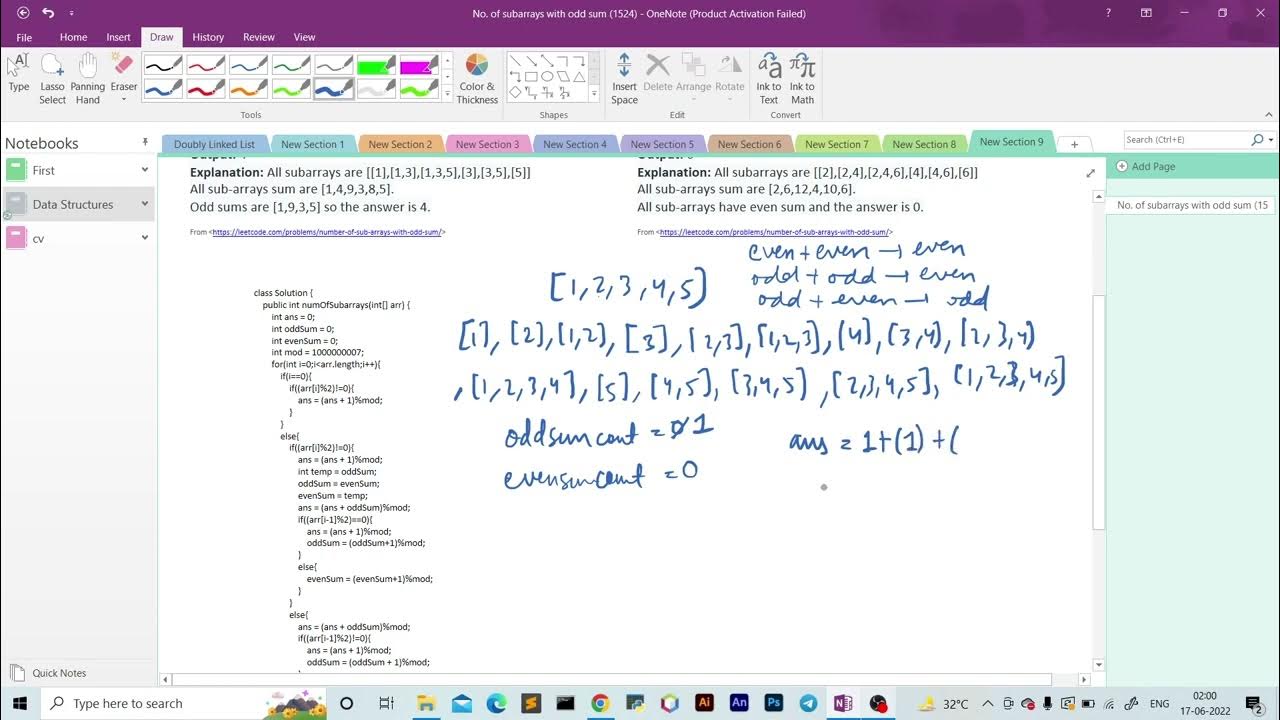 No. of subarrays with odd sum (1524) - OneNote (Product Activation Failed)
File Home Insert Draw History Review View
Type
Lasso Select
Panning Hand
Eraser
Color & Thickness
Insert Space
Delete
Arrange
Rotate
Ink to Text
Ink to Math
Tools
Shapes
Edit
Convert
Notebooks
First
Data Structures
cv
Quick Notes
Doubly Linked List New Section 1 New Section 2 New Section 3 New Section 4 New Section 5 New Section 6 New Section 7 New Section 8 New Section 9
Search (Ctrl+E)
Add Page
No. of subarrays with odd sum (15
Explanation: All subarrays are [[1],[1,3],[1,3,5],[3],[3,5],[5]]
All sub-arrays sum are [1,4,9,3,8,5].
Odd sums are [1,9,3,5] so the answer is 4.
From <https://leetcode.com/problems/number-of-sub-arrays-with-odd-sum/>
Explanation: All subarrays are [[2],[2,4],[2,4,6],[4],[4,6],[6]]
All sub-arrays sum are [2,6,12,4,10,6].
All sub-arrays have even sum and the answer is 0.
From <https://leetcode.com/problems/number-of-sub-arrays-with-odd-sum/>
even + even → even
odd + odd → even
odd + even → odd
[1,2,3,4,5]
[1], [2], [1,2], [3], [2,3], [1,2,3], [4], [3,4], [2,3,4]
, [1,2,3,4], [5], [4,5], [3,4,5], [2,3,4,5], [1,2,3,4,5]
oddsumcont = 0 1
evensumcount = 0
ans = 1+(1)+(
class Solution {
public int numOfSubarrays(int[] arr) {
int ans = 0;
int oddSum = 0;
int evenSum = 0;
int mod = 1000000007;
for(int i=0;i<arr.length;i++){
if(i==0){
if((arr[i]%2)!=0){
ans = (ans + 1)%mod;
}
}
else{
if((arr[i]%2)!=0){
ans = (ans + 1)%mod;
int temp = oddSum;
oddSum = evenSum;
evenSum = temp;
ans = (ans + oddSum)%mod;
if((arr[i-1]%2)==0){
ans = (ans + 1)%mod;
oddSum = (oddSum+1)%mod;
}
else{
evenSum = (evenSum+1)%mod;
}
}
else{
ans = (ans + oddSum)%mod;
if((arr[i-1]%2)!=0){
ans = (ans + 1)%mod;
oddSum = (oddSum + 1)%mod;
Type here to search
32°C
ENG
02:00
17-06-2022